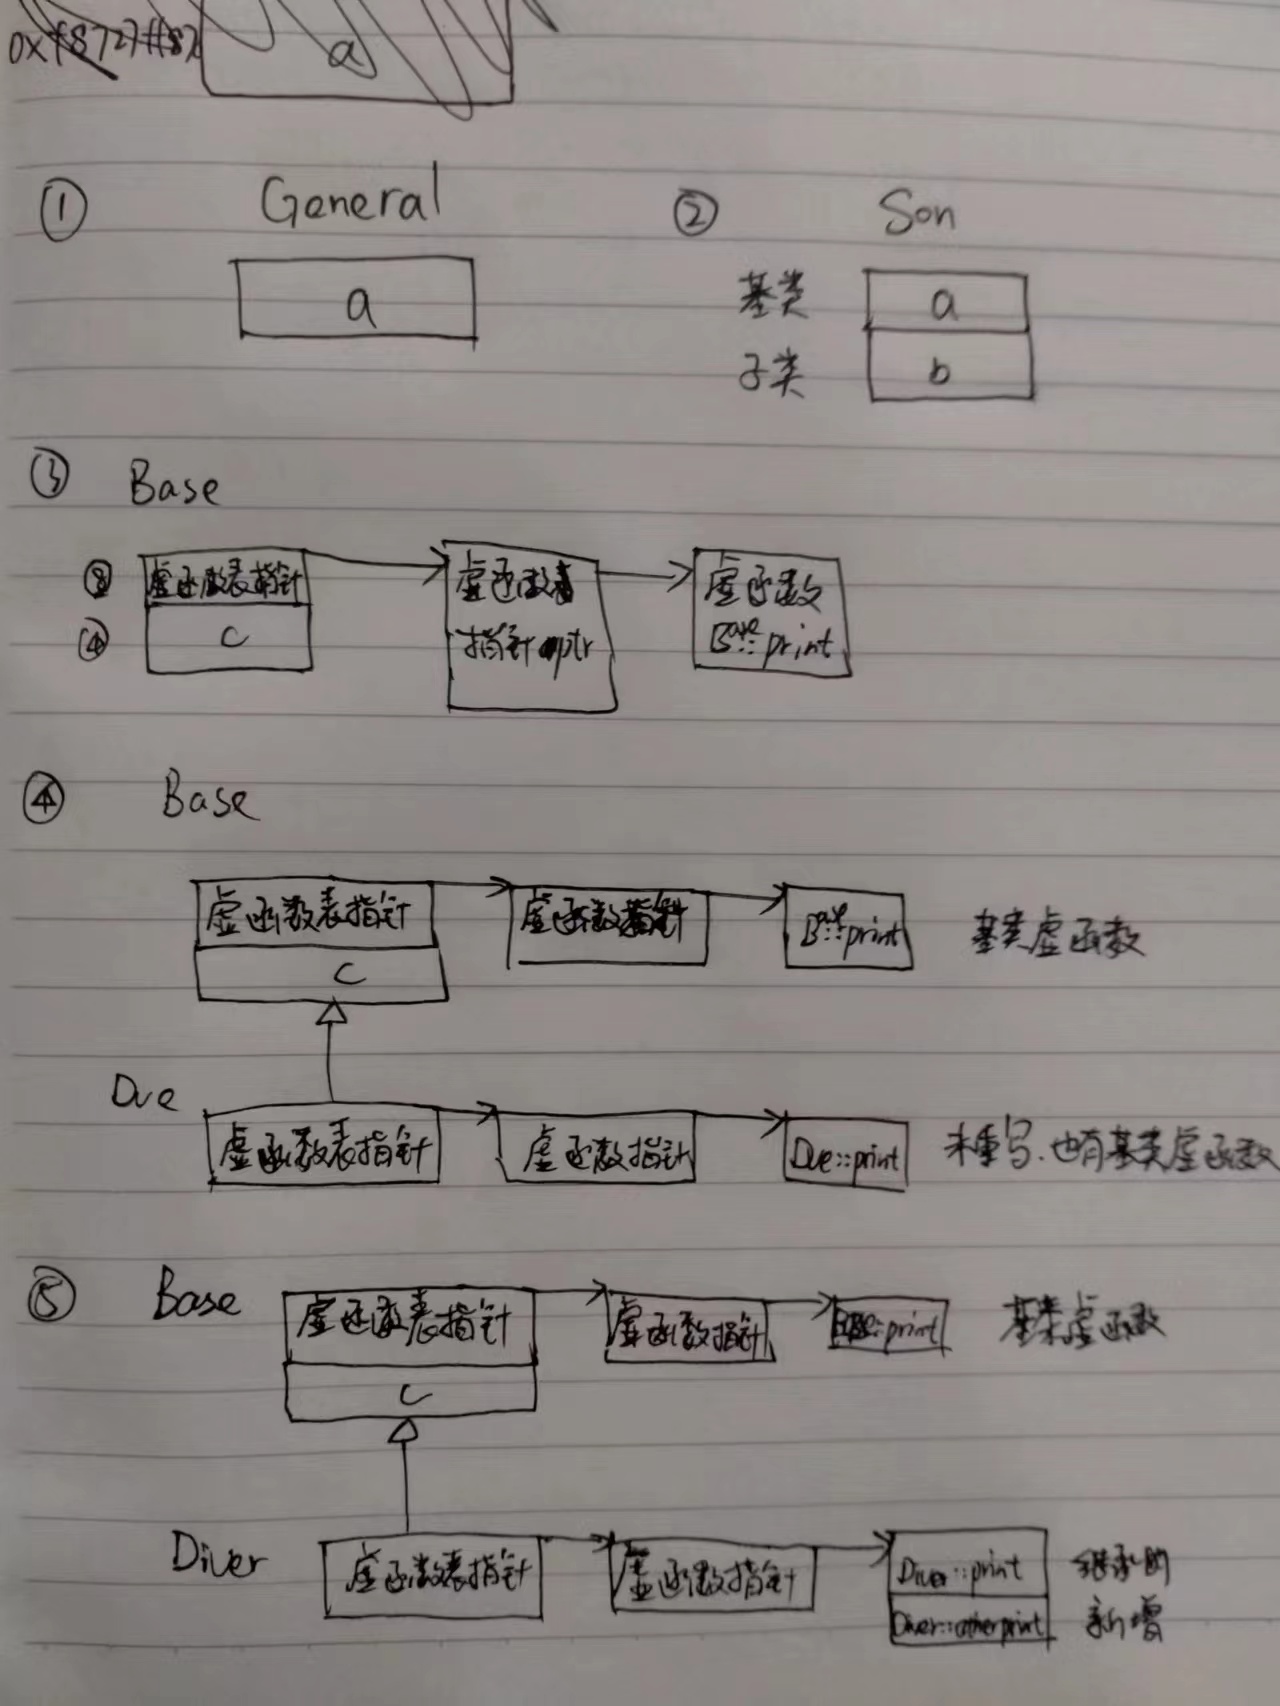 a
① General ② Son
a 基类 a
子类 b
③ Base
虚函数表指针 虚函数表 虚函数
④ c 指针 Base::print
④ Base
虚函数表指针 虚函数指针 Base::print 基类虚函数
c
Due
虚函数表指针 虚函数指针 Due::print 未重写、也有基类虚函数
⑤ Base 虚函数表指针 虚函数指针 Base::print 基类虚函数
c
Diver 虚函数表指针 虚函数指针 Diver::print 继承的
Diver::otherprint 新增